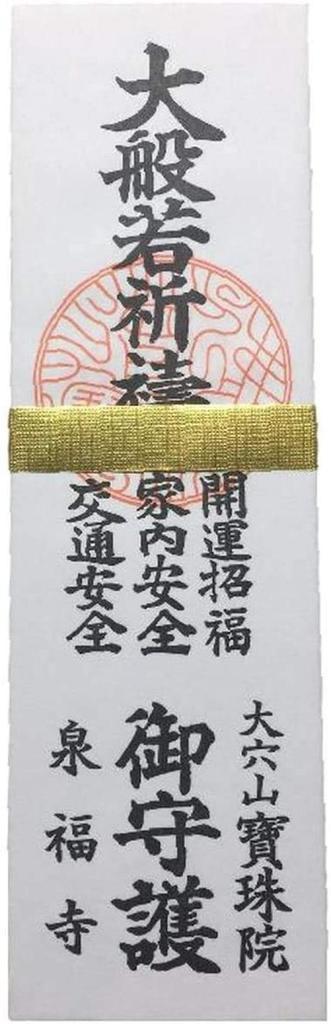 大般若祈禱
開運招福
家内安全
交通安全
大穴山寶珠院
御守護
泉福寺